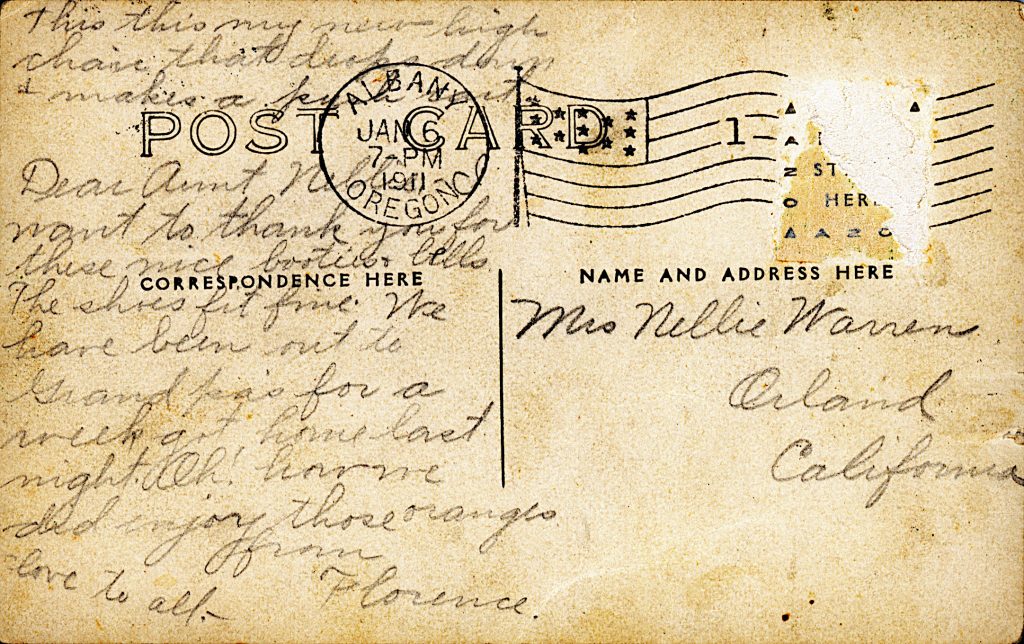 This this my new high
chair that
& makes a
POST CARD
ALBANY
JAN 6
7 PM
1911
OREGON
1
Dear Aunt
want to thank you for
these nice booties. bells
CORRESPONDENCE HERE
The shoes fit fine. We
have been out to
Grandpas for a
week got home last
night. Oh! how we
did enjoy those oranges
from
love to all.
Florence.
ST
HER
NAME AND ADDRESS HERE
Mrs Nellie Warren
Orland
California